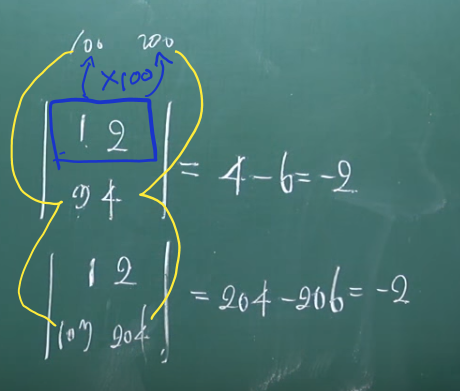 100 200
×100
| 1 2 |
| 3 4 | = 4 - 6 = -2
| 1 2 |
| 103 204 | = 204 - 206 = -2